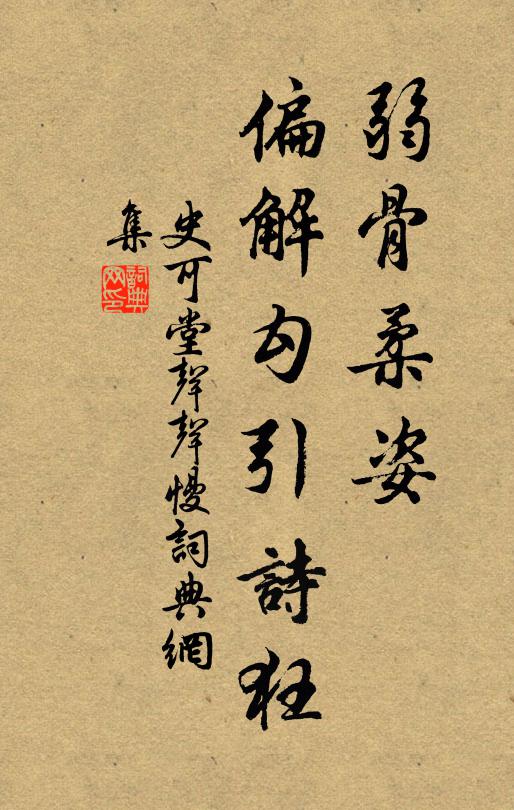 弱骨柔姿
偏解勾引詩狂
史可堂聲聲慢詞典網
集
詞典
网印